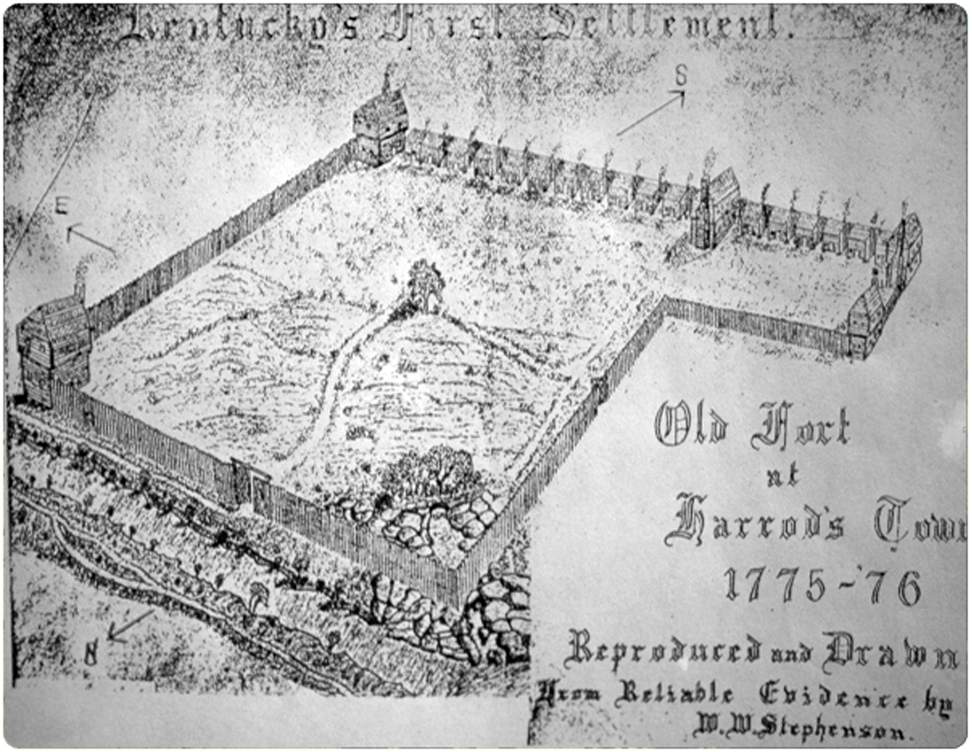 Kentucky's First Settlement.
S
E
Old Fort
at
Harrod's Town
1775-'76
N
Reproduced and Drawn
From Reliable Evidence by
W.W.Stephenson.